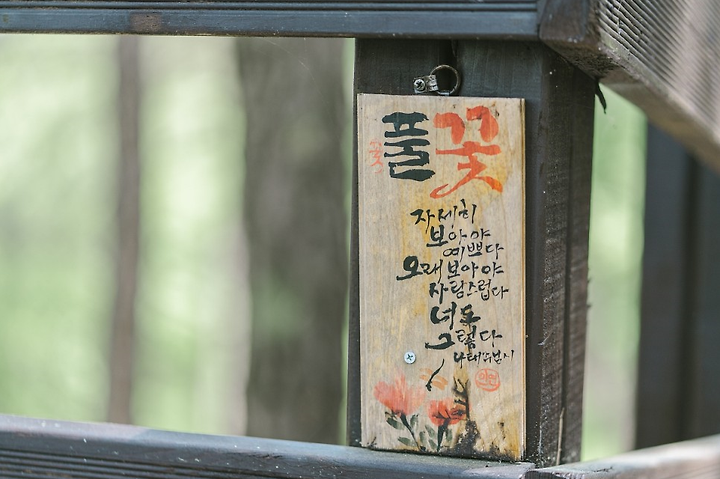 풀꽃
꽃
자세히
보아야
예쁘다
오래 보아야
사랑스럽다
너도
그렇다
나태주님 시